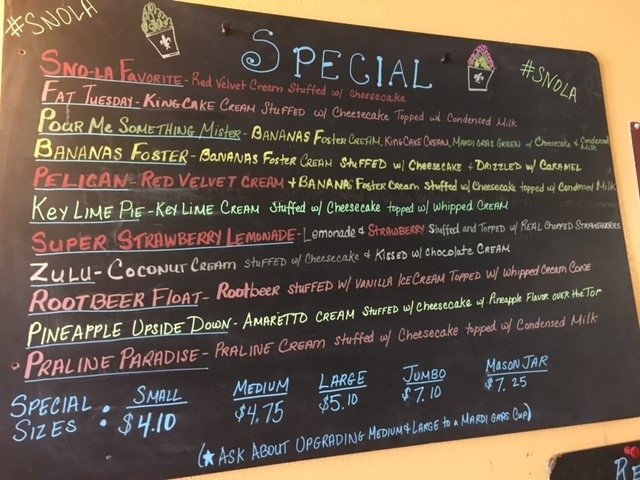 #SNOLA
SPECIAL
#SNOLA
SNO-LA FAVORITE - Red Velvet Cream Stuffed w/ Cheesecake
FAT TUESDAY - KING CAKE CREAM STUFFED w/ Cheesecake Topped w/ Condensed Milk
POUR ME SOMETHING MISTER - BANANAS FOSTER CREAM, KING CAKE CREAM, MARDI GRAS GREEN w/ Cheesecake & Condensed Milk
BANANAS FOSTER - BANANAS FOSTER CREAM STUFFED w/ Cheesecake + DRIZZLED w/ CARAMEL
PELICAN - RED VELVET CREAM + BANANAS FOSTER CREAM Stuffed w/ Cheesecake topped w/ Condensed Milk
KEY LIME PIE - KEY LIME CREAM Stuffed w/ Cheesecake topped w/ Whipped CREAM
SUPER STRAWBERRY LEMONADE - Lemonade & STRAWBERRY Stuffed and Topped w/ REAL CHOPPED STRAWBERRIES
ZULU - COCONUT CREAM STUFFED w/ Cheesecake & KISSED w/ Chocolate CREAM
ROOTBEER FLOAT - Rootbeer STUFFED W/ VANILLA ICE CREAM TOPPED w/ Whipped Cream CONE
PINEAPPLE UPSIDE DOWN - AMARETTO CREAM Stuffed w/ Cheesecake w/ Pineapple Flavor over the Top
PRALINE PARADISE - PRALINE CREAM stuffed w/ Cheesecake topped w/ Condensed Milk
SPECIAL SIZES :
SMALL $4.10
MEDIUM $4.75
LARGE $5.10
JUMBO $7.10
MASON JAR $7.25
(★ ASK ABOUT UPGRADING MEDIUM & LARGE to a MARDI GRAS CUP)
RE